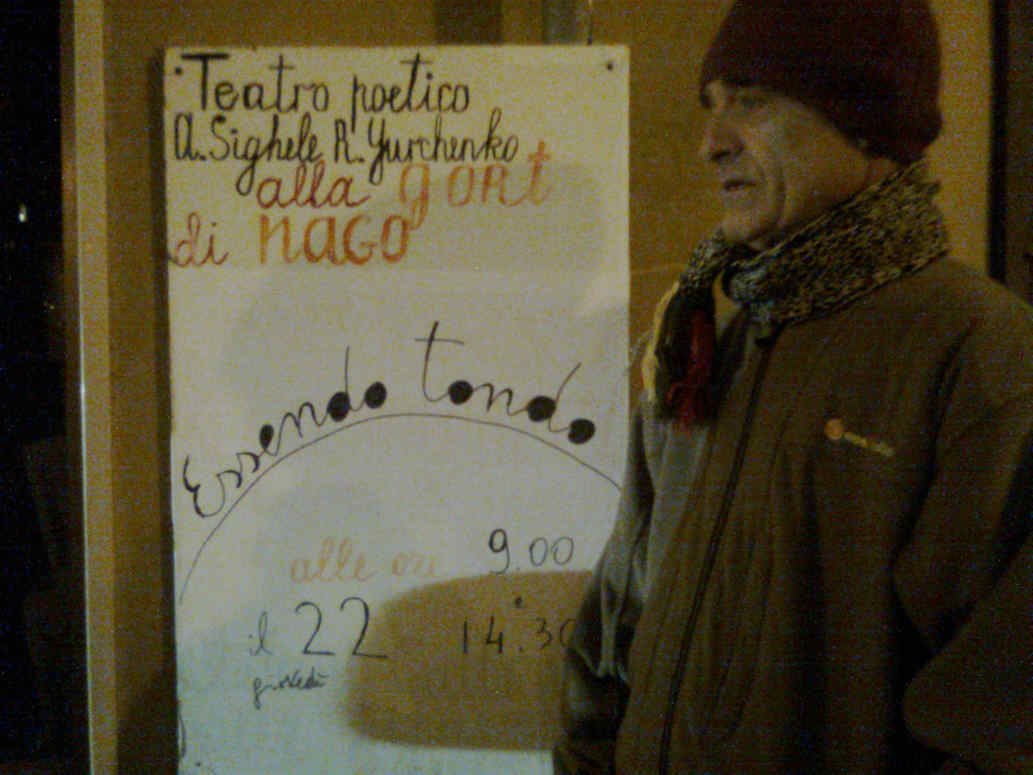 Teatro poetico
A. Sighele R. Yurchenko
alla gori
di NAGO
Essendo tondo
alle ore 9.00
e
il 22 14.30
giovedì